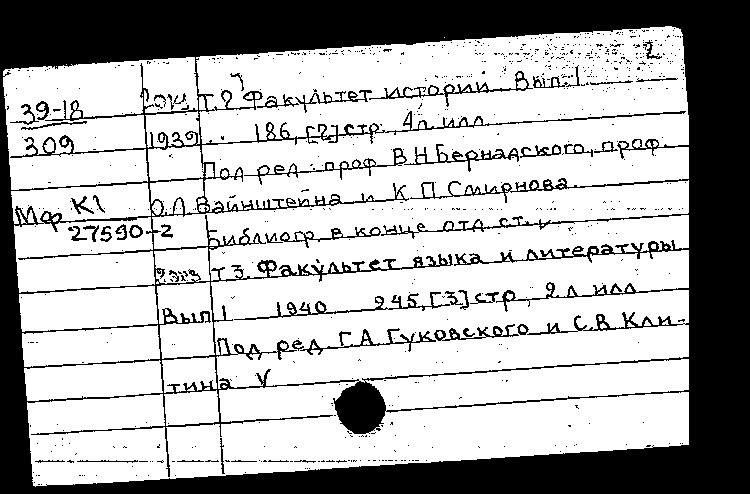 2
39-18 2 экз. Т.2. Факультет истории. Вып. 1
309 1939. 186, [2] стр., 4 л. илл.
Под ред. проф. В.Н. Бернадского, проф.
Мф К1 О.Л. Вайнштейна и К.П. Смирнова.
27590-2 Библиогр. в конце отд. ст. v
2 экз Т.3. Факультет языка и литературы
Вып. 1 1940 245, [3] стр., 2 л. илл.
Под ред. Г.А. Гуковского и С.В. Кли-
тина V